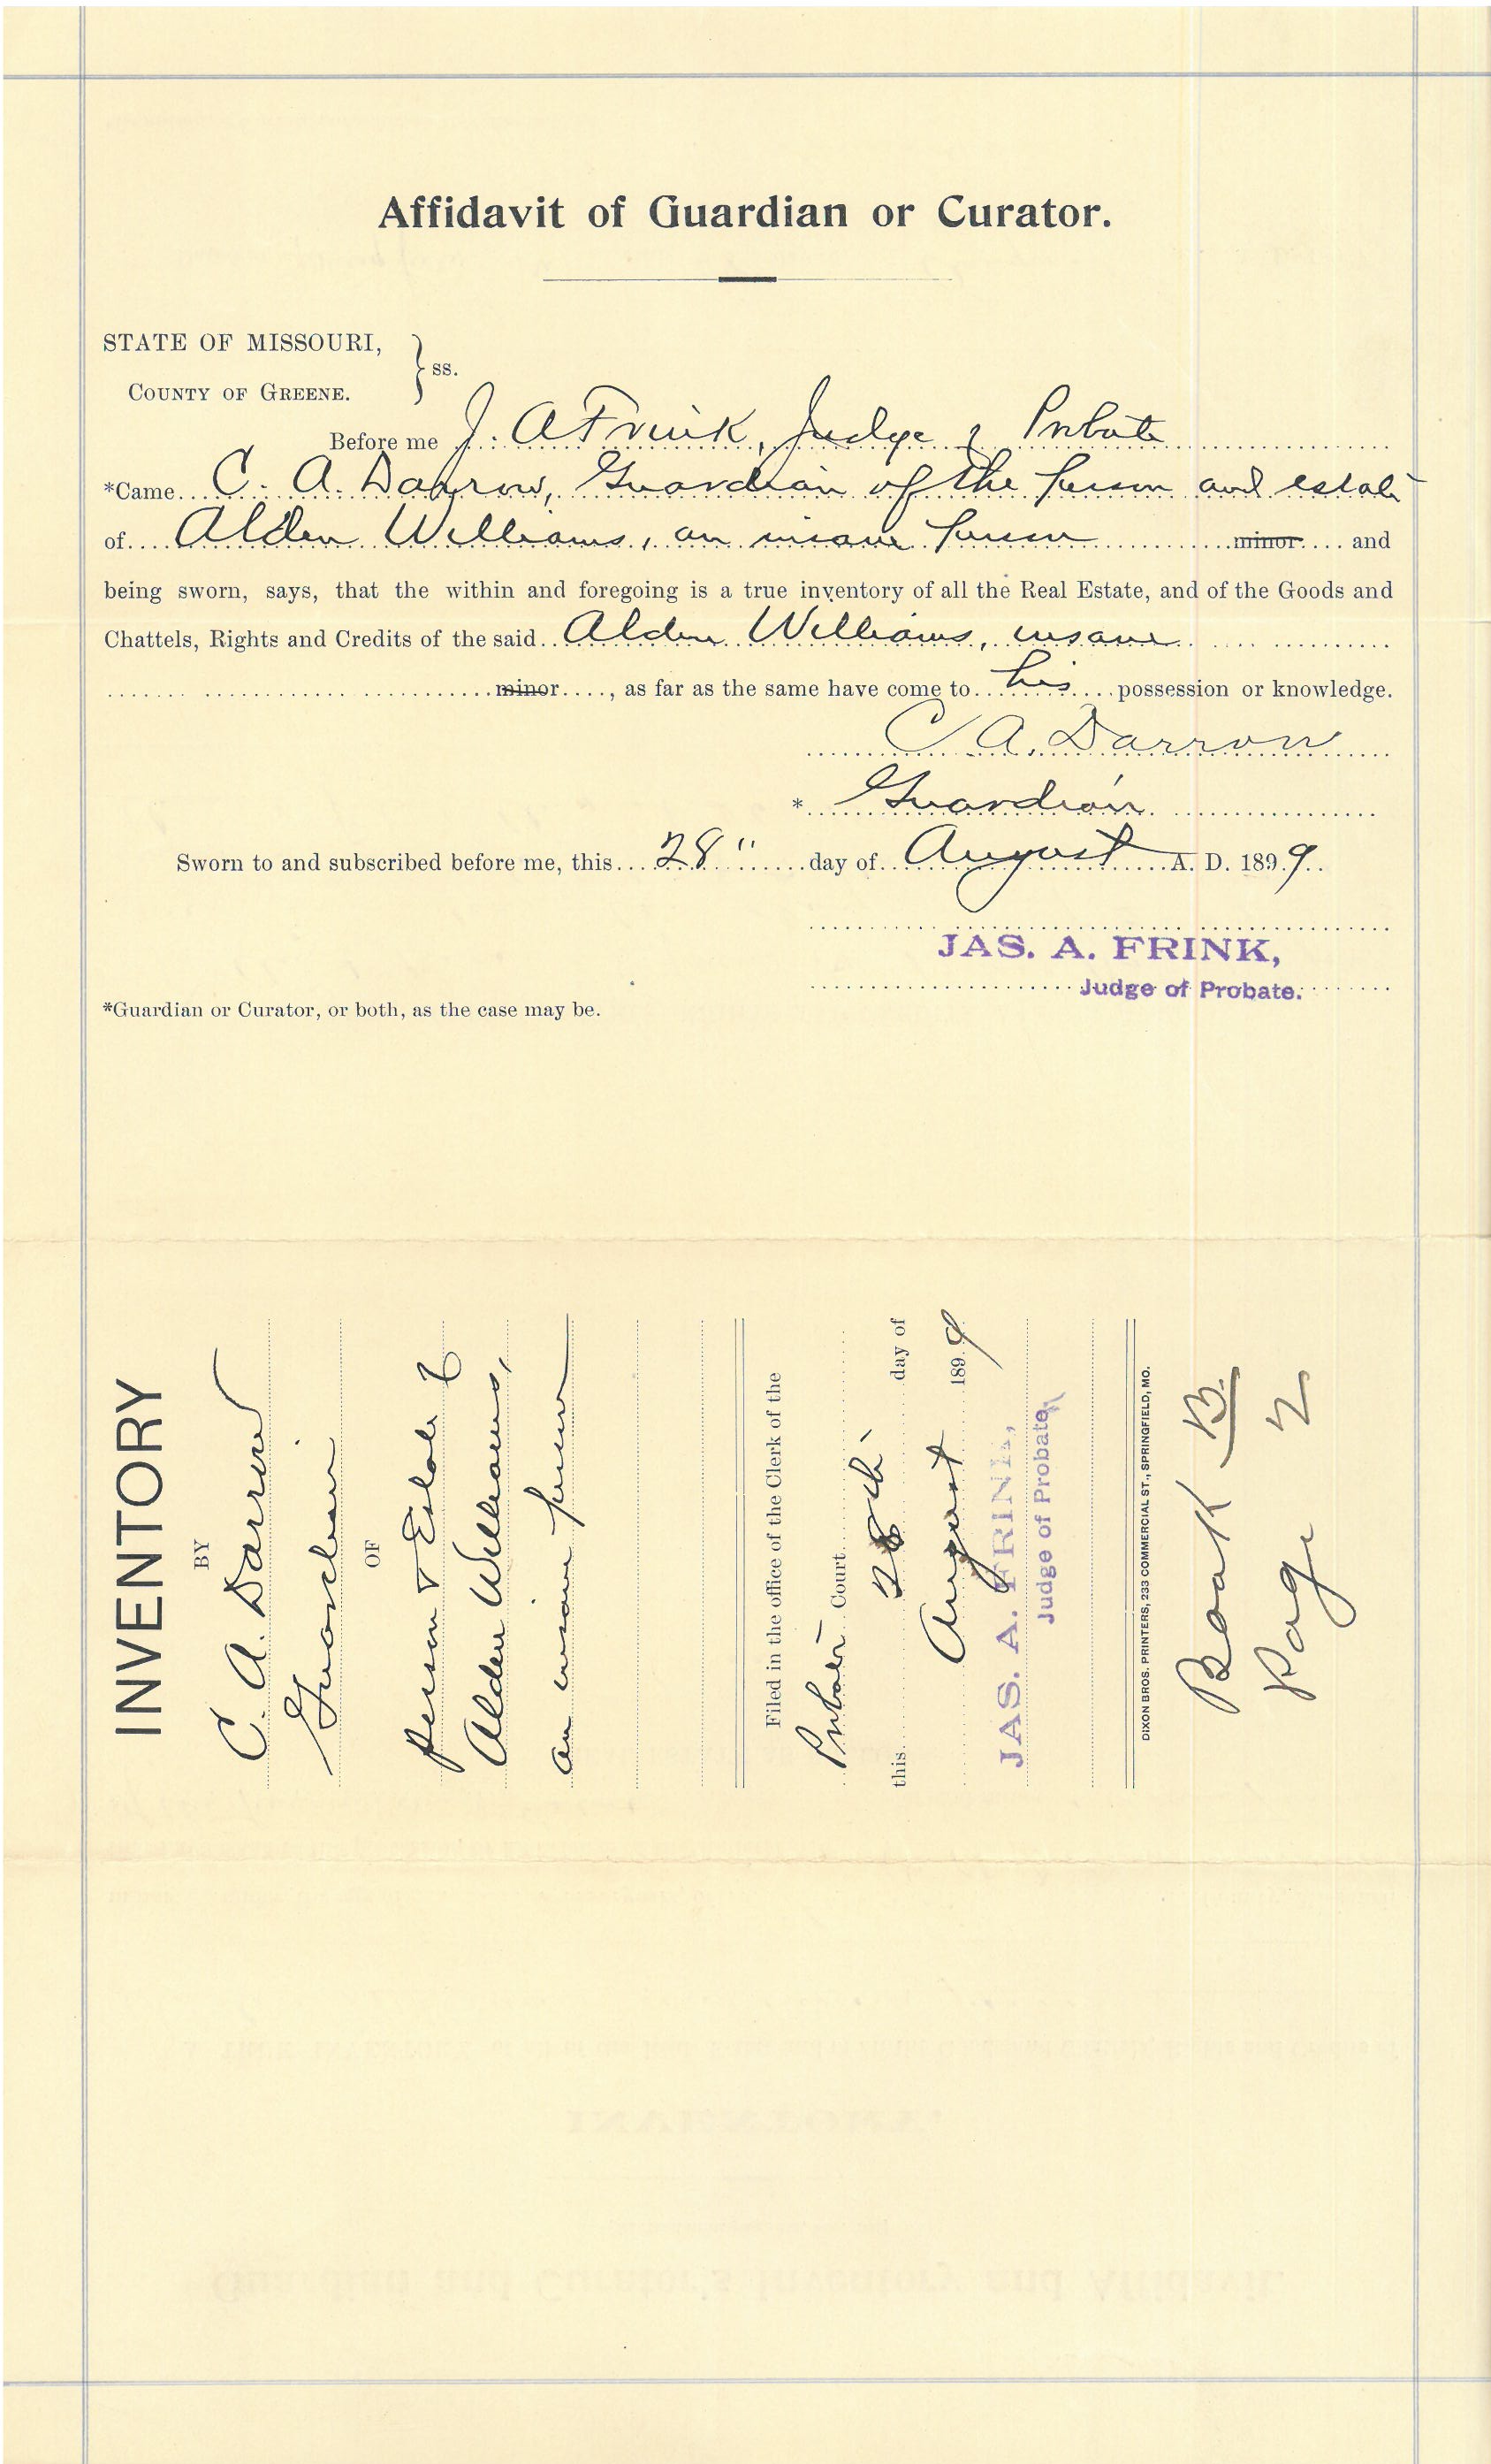 Affidavit of Guardian or Curator.
STATE OF MISSOURI,
COUNTY OF GREENE. } ss.
Before me J. A Frink, Judge of Probate
*Came C. A. Darrow, Guardian of the person and estate
of Alden Williams, an insane person minor and
being sworn, says, that the within and foregoing is a true inventory of all the Real Estate, and of the Goods and
Chattels, Rights and Credits of the said Alden Williams, insane
minor, as far as the same have come to his possession or knowledge.
C A. Darrow
* Guardian
Sworn to and subscribed before me, this 28" day of August A. D. 1899.
JAS. A. FRINK,
Judge of Probate.
*Guardian or Curator, or both, as the case may be.
INVENTORY
BY
C. A. Darrow
Guardian
OF
person & Estate of
Alden Williams,
an insane person
Filed in the office of the Clerk of the
Probate Court
this 28th day of
August 1899
JAS. A. FRINK,
Judge of Probate
DIXON BROS. PRINTERS, 233 COMMERCIAL ST., SPRINGFIELD, MO.
Book B
Page 2